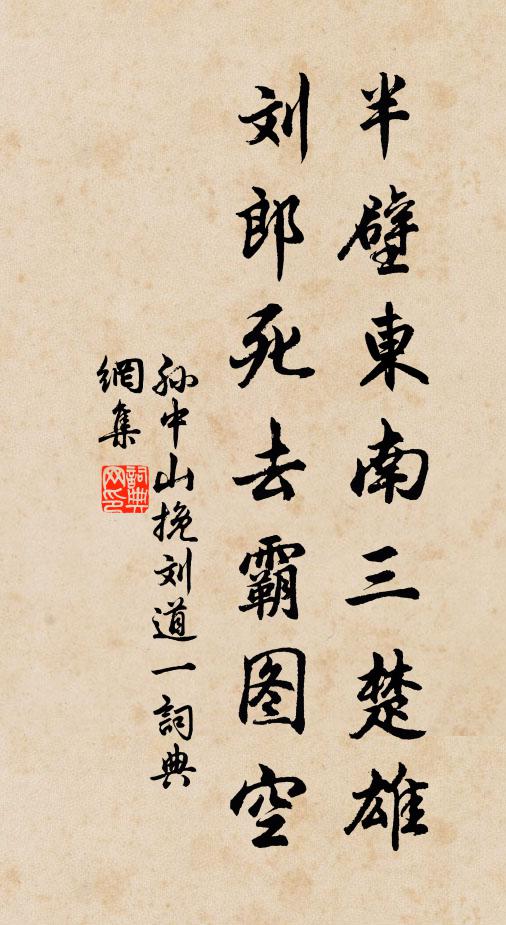 半壁東南三楚雄
刘郎死去霸图空
孙中山挽刘道一詞典
網集
詞典
网印